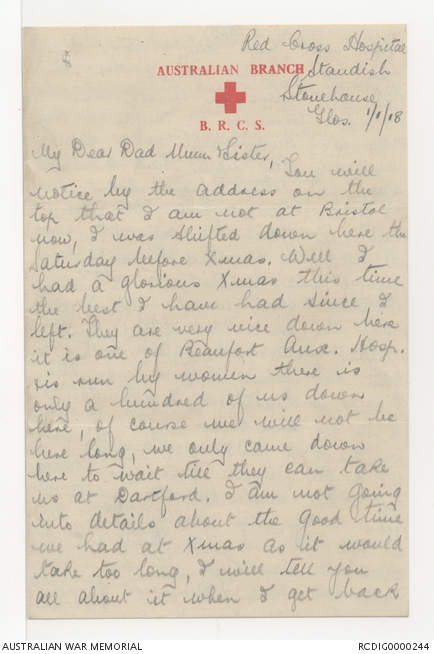 Red Cross Hospital
AUSTRALIAN BRANCH Standish
Stonehouse
B. R. C. S.
Glos. 1/1/18
My Dear Dad Mum & Sister,
You will
notice by the address on the
top that I am not at Bristol
now, I was shifted down here the
Saturday before Xmas. Well I
had a glorious Xmas this time
the best I have had since I
left. They are very nice down here
it is one of Beaufort Aux. Hosp.
& is run by women there is
only a hundred of us down
here, of course we will not be
here long, we only came down
here to wait till they can take
us at Dartford. I am not going
into details about the good time
we had at Xmas as it would
take too long, I will tell you
all about it when I get back
AUSTRALIAN WAR MEMORIAL
RCDIG0000244